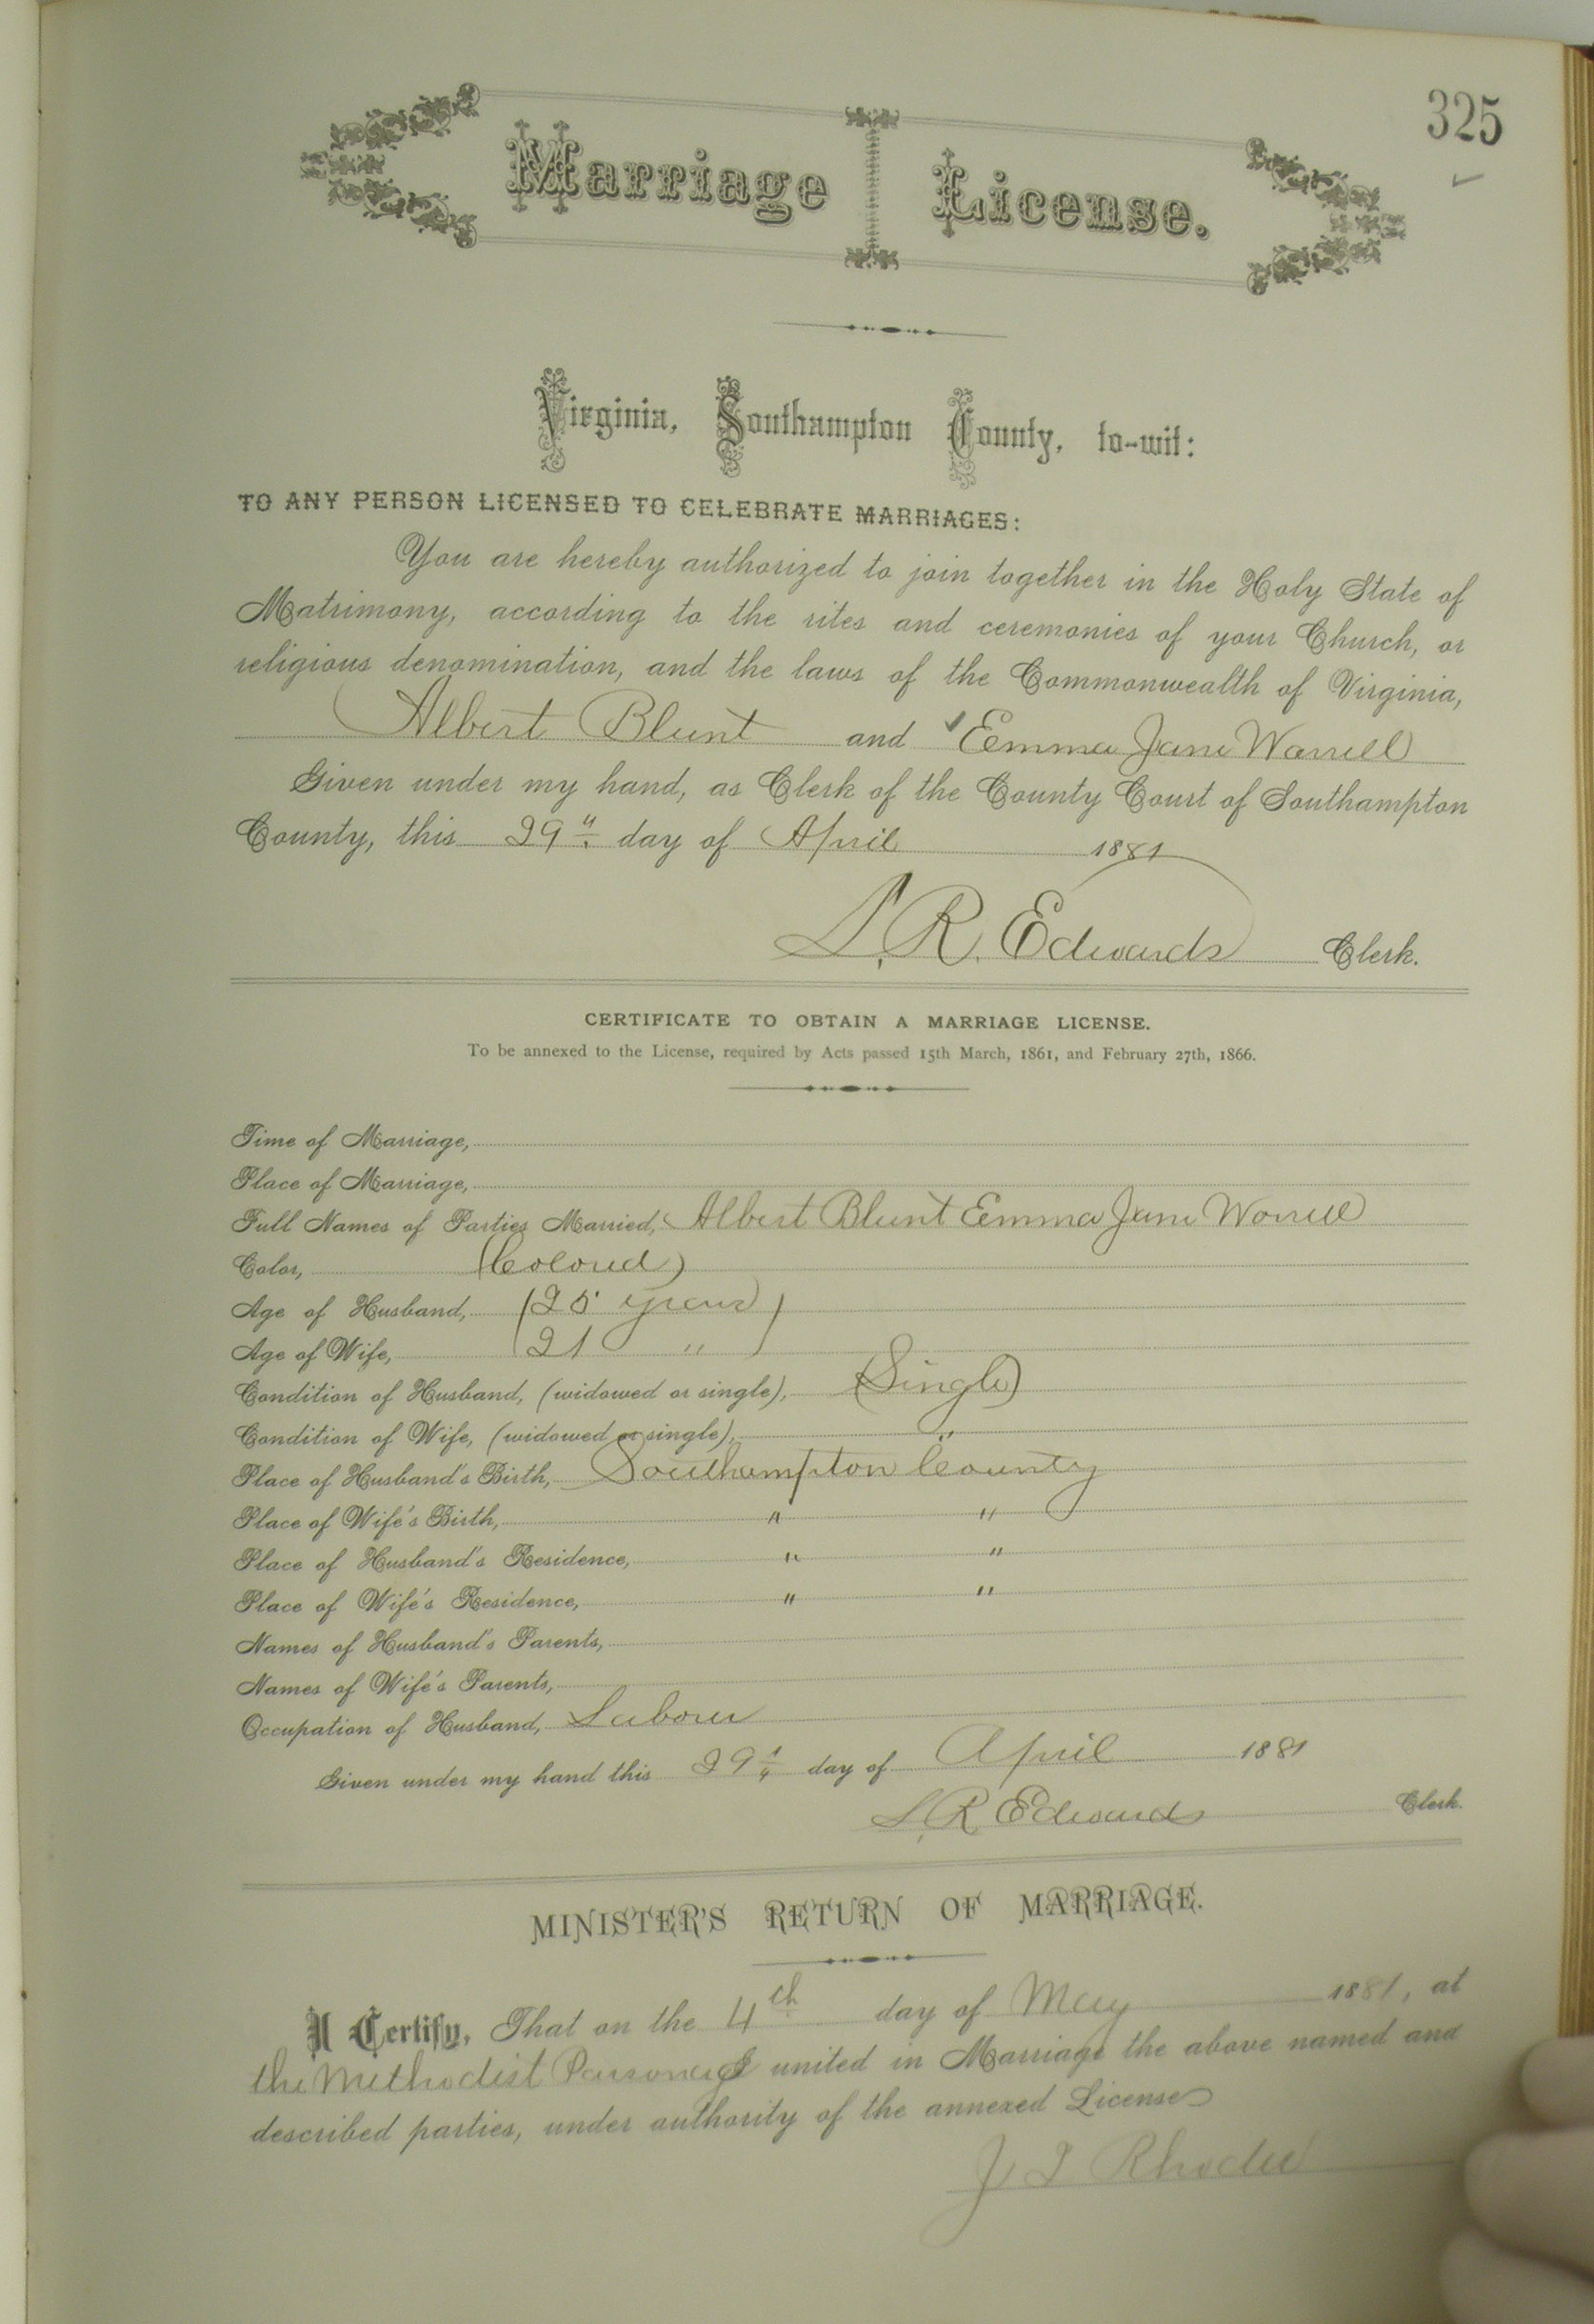 325
Marriage License.
Virginia, Southampton County, to-wit:
TO ANY PERSON LICENSED TO CELEBRATE MARRIAGES:
You are hereby authorized to join together in the Holy State of
Matrimony, according to the rites and ceremonies of your Church, or
religious denomination, and the laws of the Commonwealth of Virginia,
Albert Blunt and Emma Jane Worrell
Given under my hand, as Clerk of the County Court of Southampton
County, this 29th day of April 1881
L. R. Edwards Clerk.
CERTIFICATE TO OBTAIN A MARRIAGE LICENSE.
To be annexed to the License, required by Acts passed 15th March, 1861, and February 27th, 1866.
Time of Marriage,
Place of Marriage,
Full Names of Parties Married, Albert Blunt Emma Jane Worrell
Color, (Colored)
Age of Husband, (25 years)
Age of Wife, 21 "
Condition of Husband, (widowed or single), (Single)
Condition of Wife, (widowed or single), "
Place of Husband's Birth, Southampton County
Place of Wife's Birth, " "
Place of Husband's Residence, " "
Place of Wife's Residence, " "
Names of Husband's Parents,
Names of Wife's Parents,
Occupation of Husband, Laborer
Given under my hand this 29th day of April 1881
L. R. Edwards Clerk.
MINISTER'S RETURN OF MARRIAGE.
I Certify, That on the 4th day of May 1881, at
the Methodist Parsonage I united in Marriage the above named and
described parties, under authority of the annexed License